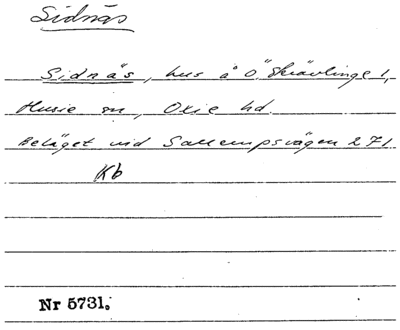 Sidnäs
Sidnäs, hus å Ö. Skrävlinge 1,
Husie sn, Oxie hd.
Beläget vid Sallerupsvägen 271
Kb
Nr 5731.